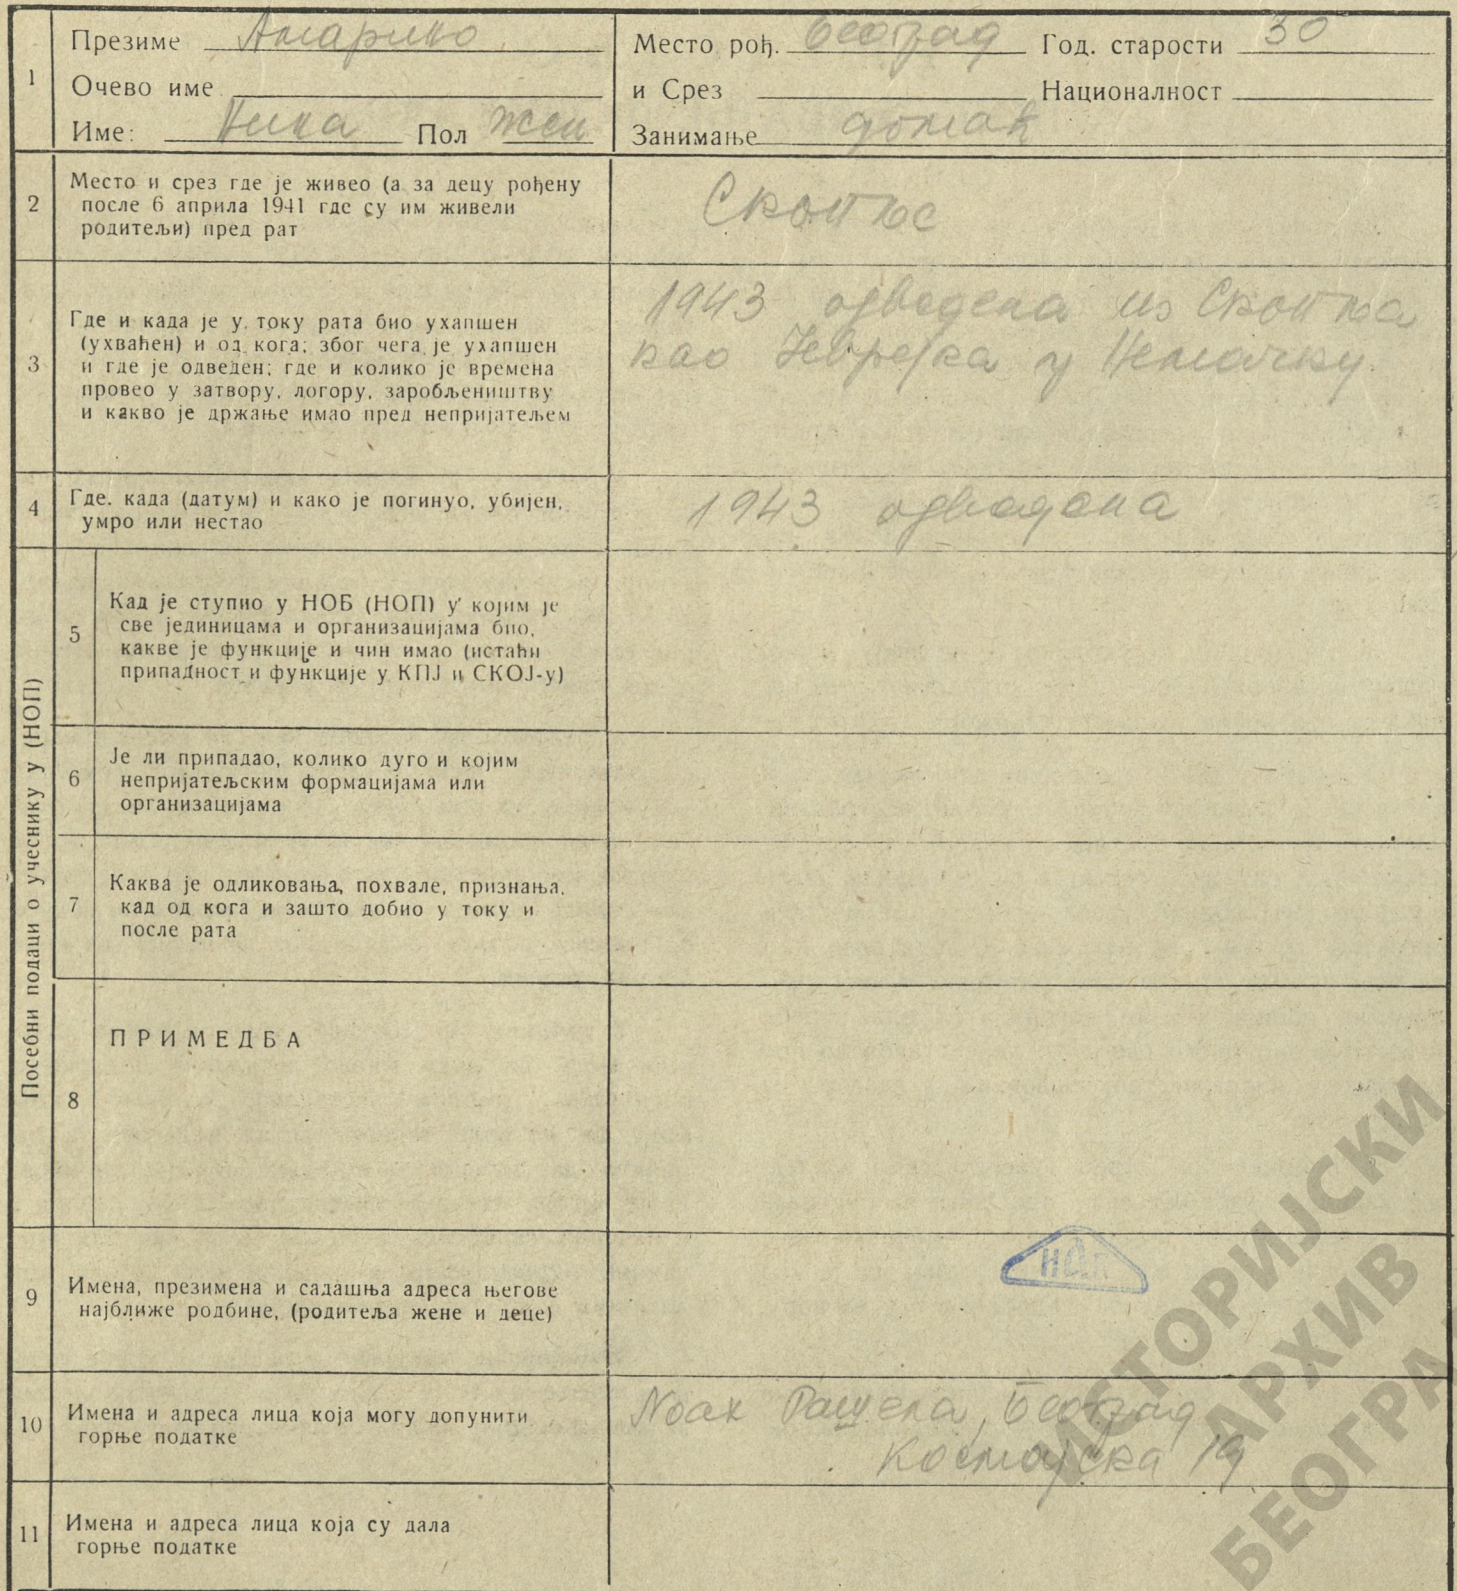 1
Презиме Амарино
Очево име
Име: Пол жен
Место рођ. Београд Год. старости 30
и Срез Националност
Занимање домаћ
2
Место и срез где је живео (а за децу рођену
после 6 априла 1941 где су им живели
родитељи) пред рат
Скопље
3
Где и када је у току рата био ухапшен
(ухваћен) и од кога; због чега је ухапшен
и где је одведен; где и колико је времена
провео у затвору, логору, заробљеништву
и какво је држање имао пред непријатељем
1943 одведена из Скопља
као Јеврејка у Немачку.
4
Где, када (датум) и како је погинуо, убијен,
умро или нестао
1943 одведена
Посебни подаци о учеснику у (НОП)
5
Кад је ступио у НОБ (НОП) у којим је
све јединицама и организацијама био,
какве је функције и чин имао (истаћи
припадност и функције у КПЈ и СКОЈ-у)
6
Је ли припадао, колико дуго и којим
непријатељским формацијама или
организацијама
7
Каква је одликовања, похвале, признања,
кад од кога и зашто добио у току и
после рата
8
ПРИМЕДБА
9
Имена, презимена и садашња адреса његове
најближе родбине, (родитеља жене и деце)
10
Имена и адреса лица која могу допунити
горње податке
Ноах Рашела, Београд
Космајска 19
11
Имена и адреса лица која су дала
горње податке
ИСТОРИЈСКИ
АРХИВ
БЕОГРА